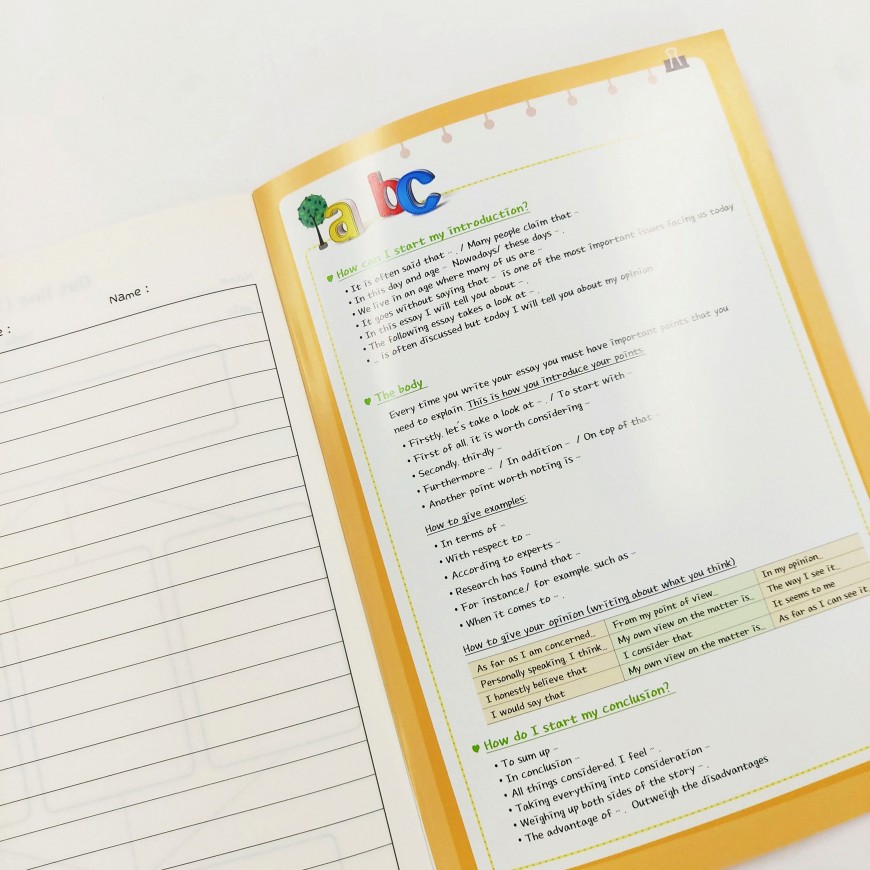 e :
Name :
a b c
How can I start my introduction?
• It is often said that ~ . / Many people claim that ~
• In this day and age ~ Nowadays/ these days ~ .
• We live in an age where many of us are ~
• It goes without saying that ~ is one of the most important issues facing us today
• In this essay I will tell you about ~ .
• The following essay takes a look at ~ .
• ~ is often discussed but today I will tell you about my opinion
The body
Every time you write your essay you must have important points that you
need to explain. This is how you introduce your points.
• Firstly, let's take a look at ~ . / To start with ~
• First of all, it is worth considering ~
• Secondly, thirdly ~
• Furthermore ~ / In addition ~ / On top of that ~
• Another point worth noting is ~
How to give examples:
• In terms of ~
• With respect to ~
• According to experts ~
• Research has found that ~
• For instance/ for example, such as ~
• When it comes to ~ .
How to give your opinion (writing about what you think)
As far as I am concerned... From my point of view... In my opinion...
Personally speaking, I think... My own view on the matter is... The way I see it...
I honestly believe that I consider that It seems to me
I would say that My own view on the matter is... As far as I can see it
How do I start my conclusion?
• To sum up ~
• In conclusion ~
• All things considered, I feel ~ .
• Taking everything into consideration ~
• Weighing up both sides of the story ~ .
• The advantage of ~ . Outweigh the disadvantages